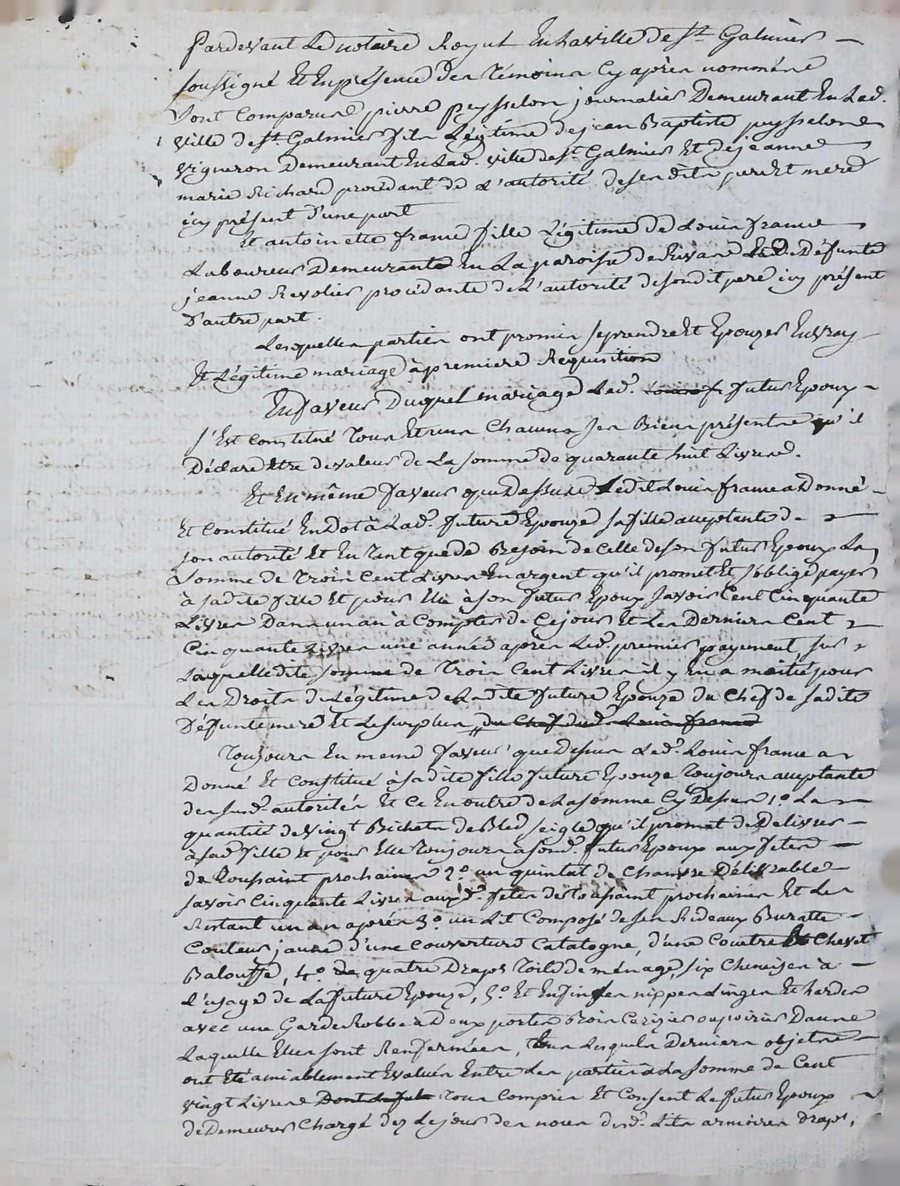 Pardevant Le notaire Royal En La ville de St Galmier
soussigné Et En présence des témoins Cy après nommés
sont Comparus pierre peysselon journalier Demeurant En Lad.
ville de St Galmier fils Légitime de jean Baptiste peysselon
vigneron Demeurant En Lad. ville de St Galmier Et de jeanne
marie Richard procédant de L'autorité de ses dits pere Et mere
icy présent d'une part
Et antoinette france fille Légitime de Louis france
Laboureur Demeurante En La paroisse de Rivas Et De Défunte
jeanne Revolier procédante de L'autorité de sondit pere icy présent
D'autre part.
Lesquelles parties ont promis se prendre Et Epouzer En vray
Et Légitime mariage à premiere Requisition
En faveur Duquel mariage Led. futur Epoux
s'Est Constitué tous Et uns Chacuns ses Biens présents qu'il
Déclare Etre de valeur de La somme de quarante huit Livres.
Et En même faveur que Dessus Ledit Louis france a Donné
Et Constitué En Dot à Lad. future Epouze sa fille acceptante de
son autorité Et En tant que de Besoin de Celle de son futur Epoux La
somme de trois Cent Livres En argent qu'il promet Et s'oblige payer
à sadite fille Et pour Elle à son futur Epoux savoir Cent Cinquante
Livres Dans un an à Compter de Ce jour Et Les Derniers Cent
Cinquante Livres une année après Led. premier payement, sur
Laquelle dite somme de trois Cent Livres il y En a moitié pour
Les Droits de Légitime de Ladite future Epouze du Chef de sadite
Défunte mere Et Le surplus du Chef dud. Louis france
Toujours En meme faveur que dessus Led. Louis france a
Donné Et Constitué à sadite fille future Epouze toujours acceptante
des sud. autorités Et Ce En outre de La somme Cy Dessus 1º La
quantité de vingt Bichets de Bled seigle qu'il promet de Délivrer
à sad. fille Et pour Elle toujours à sond. futur Epoux aux fetes
de toussaint prochaines 2º un quintal de Chanvre Délivrable
savoir Cinquante Livres aux d. fetes de toussaint prochaines Et Le
Restant un an après 3º un Lit Composé de ses Rideaux Buratte
Couleur jaune d'une Couverture Catalogne, d'une Coutre Et Chevet
Balouffe, 4º de quatre Draps toile de ménage, six Chemises à
L'usage de La future Epouze, 5º Et Enfin ses nippes Linges Et hardes
avec une Garde Robbe à Deux portes Bois Cerizier ou poirier Dans
Laquelle Elles sont Renfermées, tous Lesquels Derniers objets
ont Eté amiablement Evalués Entre Les parties à La somme de Cent
vingt Livres tous Compris Et Consent Le futur Epoux
de Demeurer Chargé dez Ce jour des noces desd. Lits armoires draps,